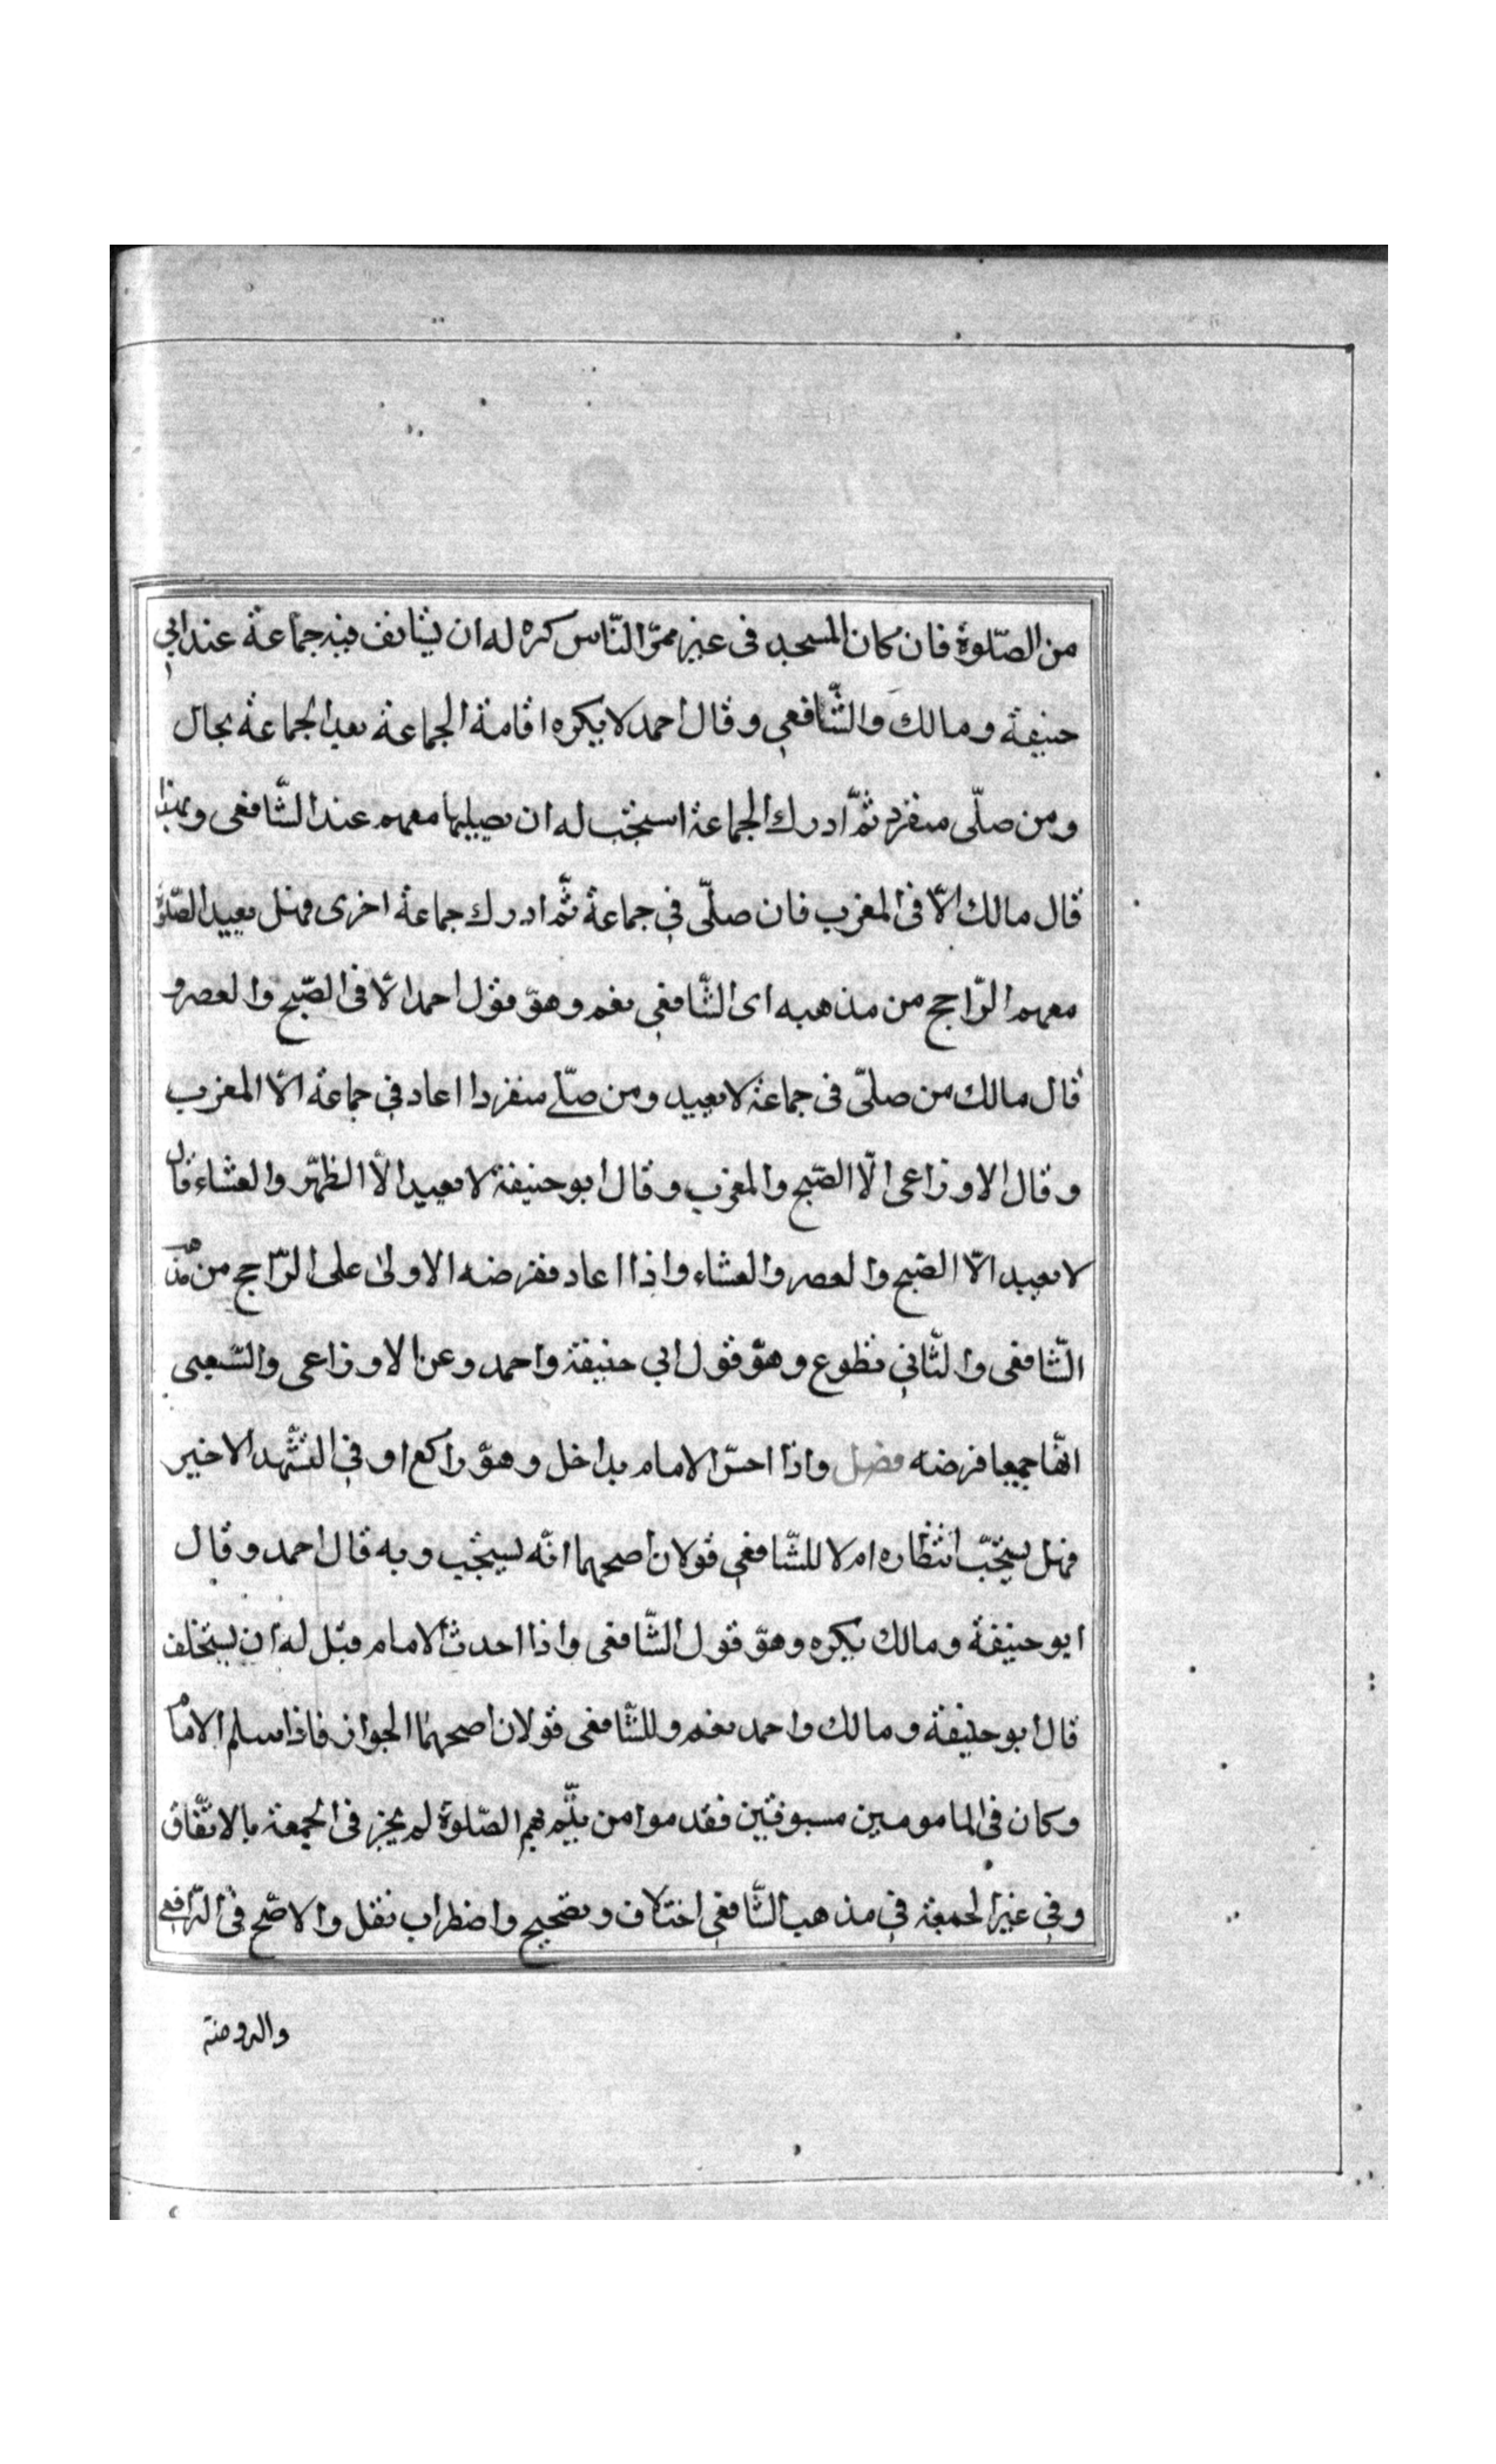 من الصّلوة فان كان المسجد فى غير ممرّ النّاس كره له ان يستانف فيه جماعة عند ابي
حنيفة ومالك والشّافعي وقال احمد لا يكره اقامة الجماعة بعد الجماعة بحال
ومن صلّى منفرد ثمّ ادرك الجماعة استحبّ له ان يصليها معهم عند الشّافعى وبهذا
قال مالك الّا فى المغرب فان صلّى في جماعة ثمّ ادرك جماعة اخرى فهل يعيد الصّلوة
معهم الرّاجح من مذهبه اى الشّافعي نعم وهوّ قول احمد الّا فى الصّبح والعصر و
قال مالك من صلّى فى جماعة لا يعيد ومن صلّے منفردا اعاد في جماعة الّا المغرب
وقال الاوزاعى الّا الصّبح والمغرب وقال ابو حنيفة لا يعيد الّا الظهّر والعشاء قال
لا يعيد الّا الصّبح والعصر والعشاء واذا اعاد ففرضه الاولى على الرّاجح من مذهب
الشّافعى والثّاني تطوع وهوّ قول ابي حنيفة واحمد وعن الاوزاعى والشّعبى
انّها جميعا فرضه فصل واذا احسّ الامام بداخل وهوّ راكع او في التشّهد الاخير
فهل يستحبّ انتظاره ام لا للشّافعي قولان اصحهما انّه يستحب وبه قال احمد وقال
ابو حنيفة ومالك يكره وهوّ قول الشّافعى واذا احدث الامام قبل له ان يستخلف
قال ابو حنيفة ومالك واحمد نعم وللشّافعى قولان اصحهما الجواز فاذا سلم الامام
وكان فى المامومين مسبوقين فقدموا من يتّم بهم الصّلوة لم يجز فى الجمعة بالاتّفاق
وفي غير الجمعة في مذهب الشّافعي اختلاف وتصحيح واضطراب نقل والاصّح فى الرّافعي
والروضة